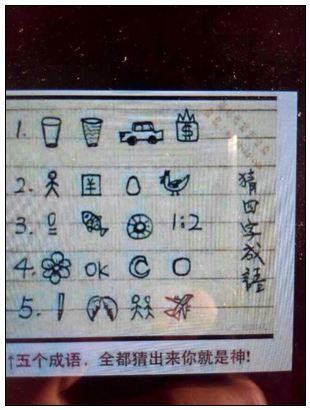 猜四字成語
1.
$
2.
3. 1:2
4. OK C O
5.
↑五个成语，全都猜出来你就是神!